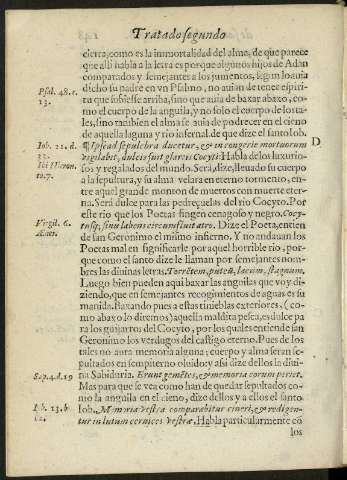 Tratado segundo
cierta, como es la immortalidad del alma, de que parece
que alli habla à la letra es porque algunos hijos de Adan
comparados y semejantes a los jumentos, segun lo auia
Psal. 48. c.
13.
dicho su padre en vn Psalmo, no auian de tener espiri-
tu que subiesse arriba, sino que auia de baxar abaxo, co-
mo el cuerpo de la anguila, y no solo el cuerpo de los ta-
les, sino tambien el alma auia de podrecer en el cieno
de aquella laguna y rio infernal, de que dize el santo Iob.
Iob. 21. d.
32.
¶ Ipse ad sepulchra ducetur, & in congerie mortuorum
D
vigilabit, dulcis fuit glareis Cocyti. Habla de los luxurio-
Ibi Hieron.
to. 7.
sos y regalados del mundo. Serà, dize, lleuado su cuerpo
a la sepultura, y su alma velara en eterno tormento, en-
tre aquel grande monton de muertos con muerte eter-
na. Será dulce para las pedreçuelas del rio Cocyto. Por
este rio que los Poetas fingen cenagoso y negro. Cocy-
Virgil. 6.
Æneı.
tusq; sinu labens circumfluit atro. Dize el Poeta, entien
de san Geronimo el mismo infierno. Y no anduuieron los
Poetas mal en significarle por aquel horrible rio, por-
que como el santo dize le llaman por semejantes nom-
bres las diuinas letras. Torrẽtem, puteũ, lacum, stagnum.
Luego bien pueden aqui baxar las anguilas que voy di-
ziendo, que en semejantes recogimientos de aguas es su
manida. Baxando pues a estas tinieblas exteriores, (co-
mo abaxo lo diremos) aquella maldita pesca, es dulce pa
ra los guijarros del Cocyto, por los quales entiende san
Geronimo los verdugos del castigo eterno. Pues de los
tales no aura memoria alguna; cuerpo y alma seran se-
pultados en sempiterno oluido: y assi dize dellos la diui-
Sap. 4. d. 19
na Sabiduria. Erunt gementes, & memoria eorum periet.
Mas para que se vea como han de quedar sepultados co-
mo la anguila en el cieno, dize dellos y a ellos el santo
Iob. 13. b
12.
Iob. Memoria vestra comparabitur cineri, & redigen-
tur in lutum ceruices vestræ. Habla particularmente cõ
los